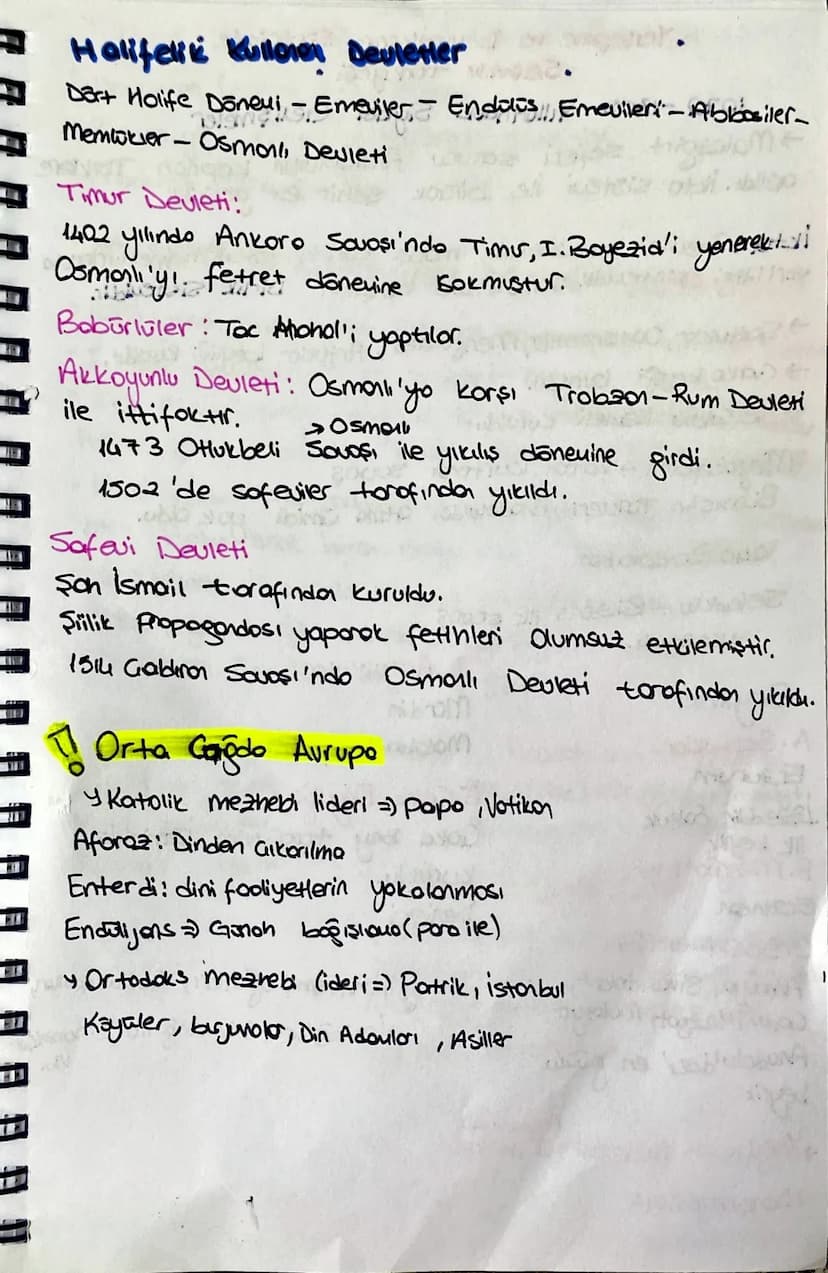 Halifeliği Kullanan Devletler
Dört Halife Dönemi - Emeviler - Endülüs Emevileri - Abbasiler -
Memlükler - Osmanlı Devleti
Timur Devleti:
1402 yılında Ankara Savaşı'nda Timur, I. Bayezid'i yenerek
Osmanlı'yı fetret dönemine sokmuştur.
Babürlüler: Tac Mahal'i yaptılar.
Akkoyunlu Devleti: Osmanlı'ya karşı Trabzon-Rum Devleti
ile ittifaktır.
→ Osmanlı
1473 Otlukbeli Savaşı ile yıkılış dönemine girdi.
1502'de safeviler tarafından yıkıldı.
Safevi Devleti
Şah İsmail tarafından kuruldu.
Şiilik Propagandası yaparak fetihleri olumsuz etkilemiştir.
1514 Çaldıran Savaşı'nda Osmanlı Devleti tarafından yıkıldı.
! Orta Çağda Avrupa
Katolik mezhebi lideri => papa, Vatikan
Aforoz: Dinden çıkarılma
Enterdi: dini faaliyetlerin yokolanması
Endülijans => Günah bağışlama (para ile)
Ortodoks mezhebi lideri => Patrik, istanbul
Köylüler, burjuvalar, Din Adamları, Asiller